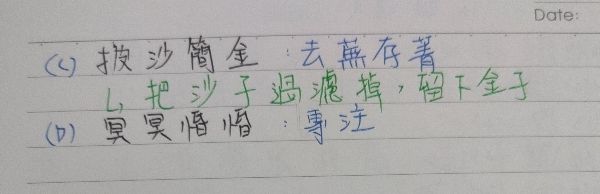 Date:
(C) 披沙簡金：去蕪存菁
↳把沙子過濾掉，留下金子
(D) 冥冥惛惛：專注